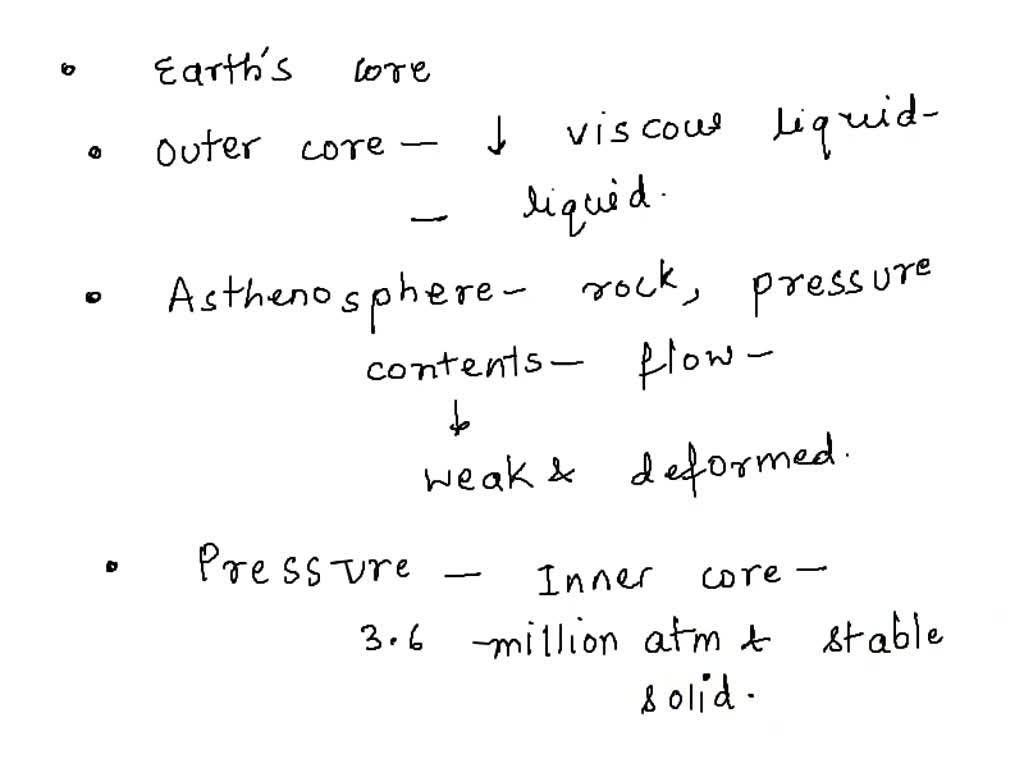 • Earth's core
• Outer core — ↓ viscous liquid-
— liquid.
• Asthenosphere - rock, pressure
contents — flow -
↓
weak & deformed.
• Pressure — Inner core -
3.6 million atm & stable
solid.